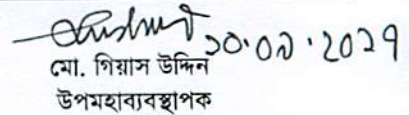 ২০.০৯.২০২৭
মো. গিয়াস উদ্দিন
উপমহাব্যবস্থাপক